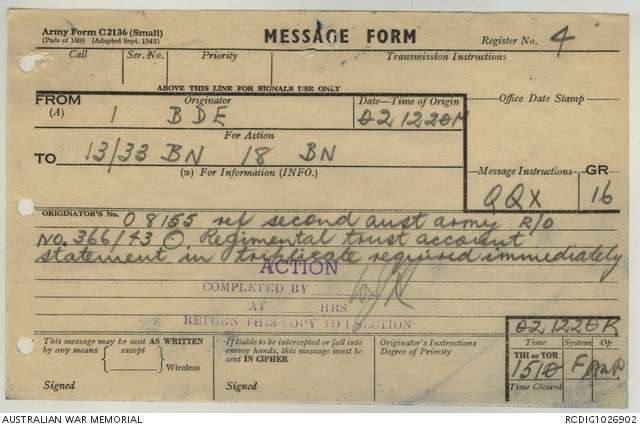 Army Form C2136 (Small)
(Pads of 100) (Adapted Sept. 1943)
MESSAGE FORM
Register No. 4
Call Ser. No. Priority Transmission Instructions
ABOVE THIS LINE FOR SIGNALS USE ONLY
FROM (A) Originator 1 BDE
Date—Time of Origin 021220K
Office Date Stamp
For Action
TO 13/33 BN 18 BN
(w) For Information (INFO.)
Message Instructions GR
QQX 16
ORIGINATOR'S No. O 8155 ref second aust army R/O
No. 366/43 . Regimental trust account
statement in triplicate required immediately
ACTION
COMPLETED BY
AT HRS
RETURN THIS COPY TO SECTION
021220K
This message may be sent AS WRITTEN
by any means except Wireless
Signed
If liable to be intercepted or fall into
enemy hands, this message must be
sent IN CIPHER
Signed
Originator's Instructions
Degree of Priority
Time System Op
THI or TOR
1510
Time Cleared
AUSTRALIAN WAR MEMORIAL
RCDIG1026902